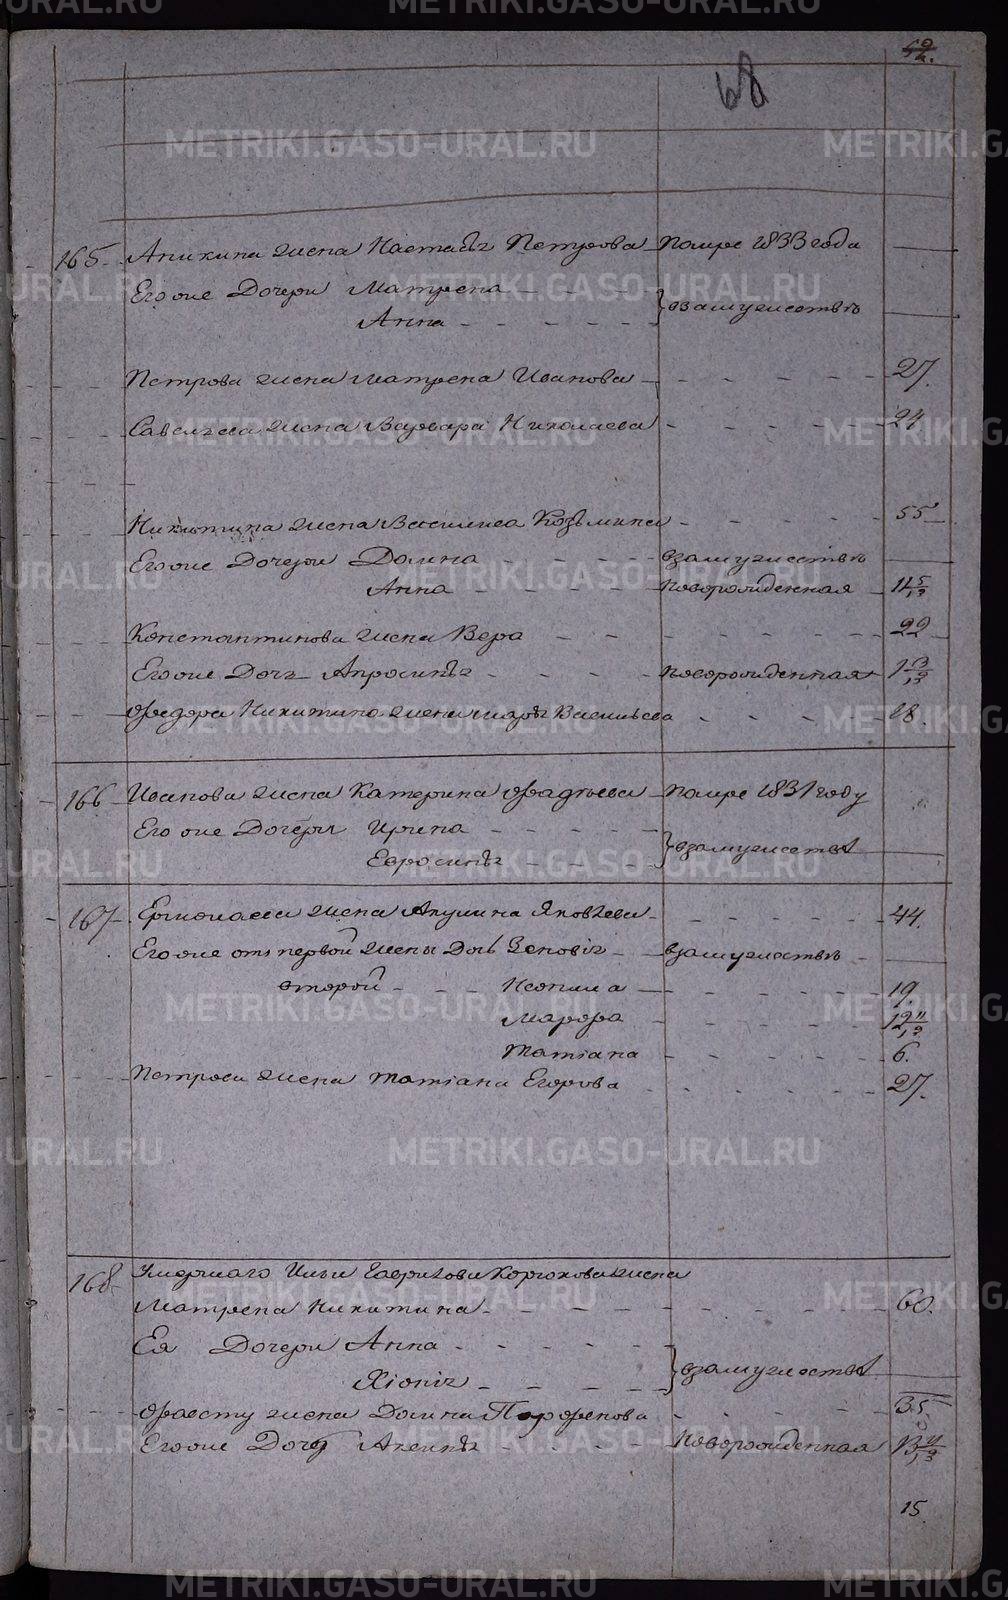 68
165 Аникина жена Настасья Петрова помре 1833 года
Его же Дочери Матрена
Анна взамужествѣ
Петрова жена Матрена Иванова 27.
Савельева жена Варвара Николаева 24
Никитина жена Василиса Козьмина 55
Его же Дочери Домна взамужествѣ
Анна новорожденная 11 5/12
Константинова жена Вера 22
Его же Дочь Апросинья новорожденная
Федора Никитина жена Марья Васильева 18.
166 Иванова жена Катерина Фадѣева помре 1831 году
Его же Дочери Ирина
Евросинья взамужествѣ
167 Ермолаева жена Акулина Яковлева 44.
Его же отъ первой жены Дочь Зеновія взамужествѣ
второй Неонила 19
Марфа 12 11/12
Татіана 6.
Петрова жена Татіана Егорова 27.
168 Умершаго Ильи Гаврилова жена
Матрена Никитина 60.
Ея Дочери Анна
Хіонія взамужествѣ
жена Домна Парфенова 35
Его же Дочь Аксинья новорожденная
15.
METRIKI.GASO-URAL.RU